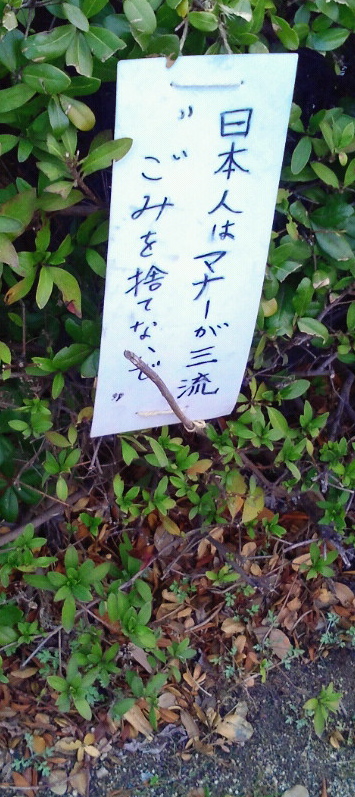 日本人はマナーが三流
〝ごみを捨てないで〟